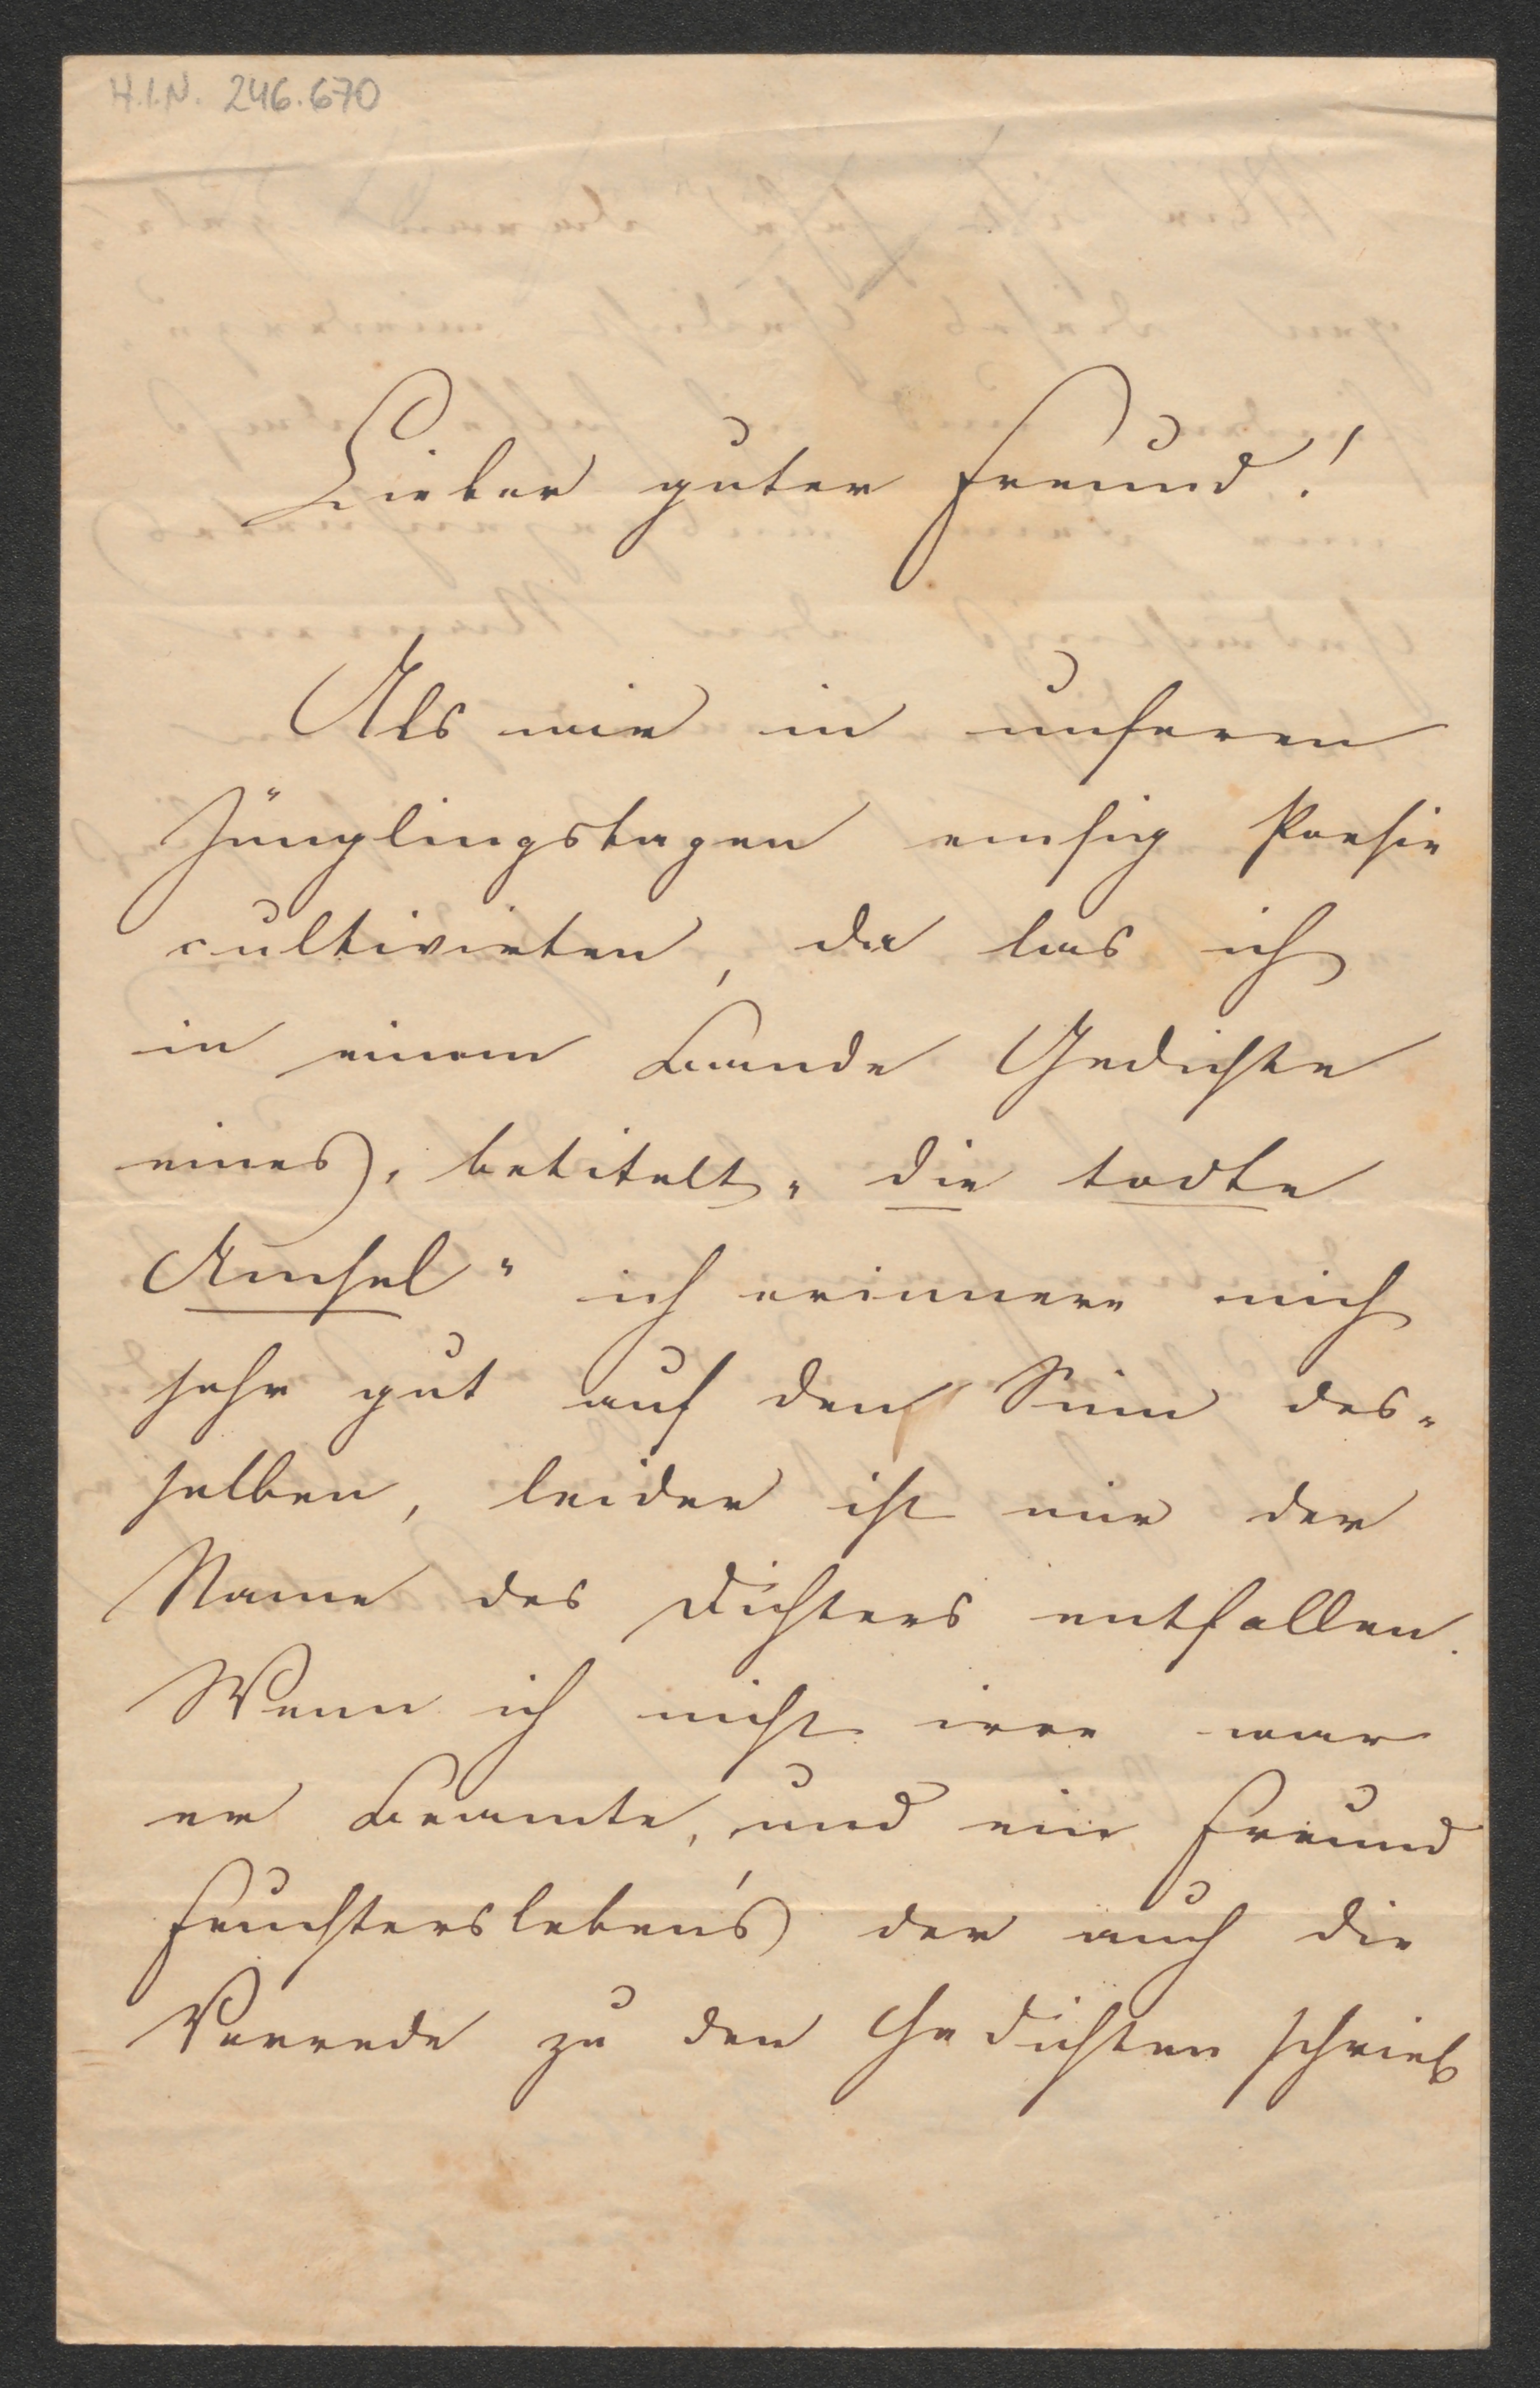 H.I.N. 246.670
Lieber guter Freund!
Als wir in unseren
Jünglingstagen emsig Poesie
cultivirten, da las ich
in einem Bande Gedichte
eines, betitelt „die todte
Amsel" ich erinnere mich
sehr gut auf den Sinn des-
selben, leider ist mir der
Name des Dichters entfallen.
Wenn ich nicht irre war
er Beamte, und ein Freund
Feuchterslebens der auch die
Vorrede zu den Gedichten schrieb